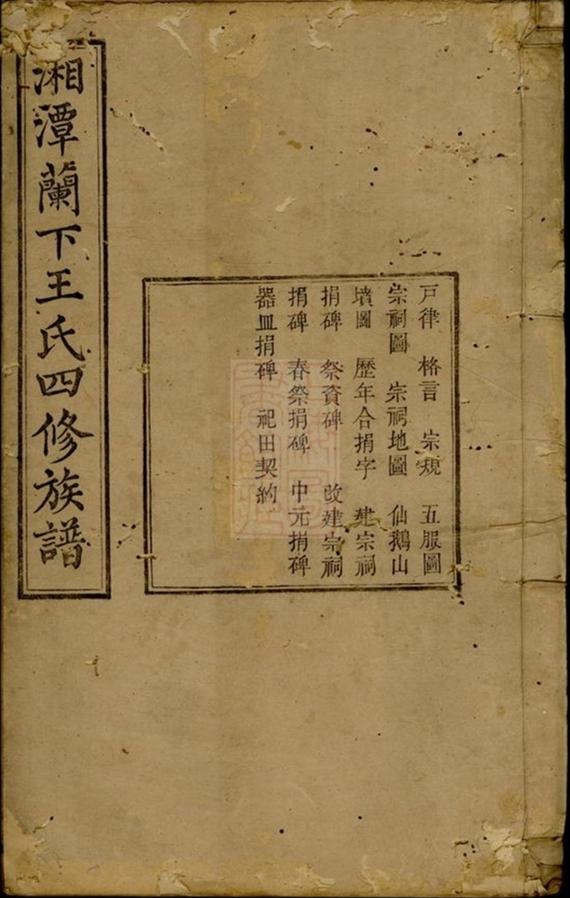 湘潭蘭下王氏四修族譜
戸律 格言 宗規 五服圖
宗祠圖 宗祠地圖 仙鵝山
墳圖 歷年合捐字 建宗祠
捐碑 祭資碑 改建宗祠
捐碑 春祭捐碑 中元捐碑
器皿捐碑 祀田契約